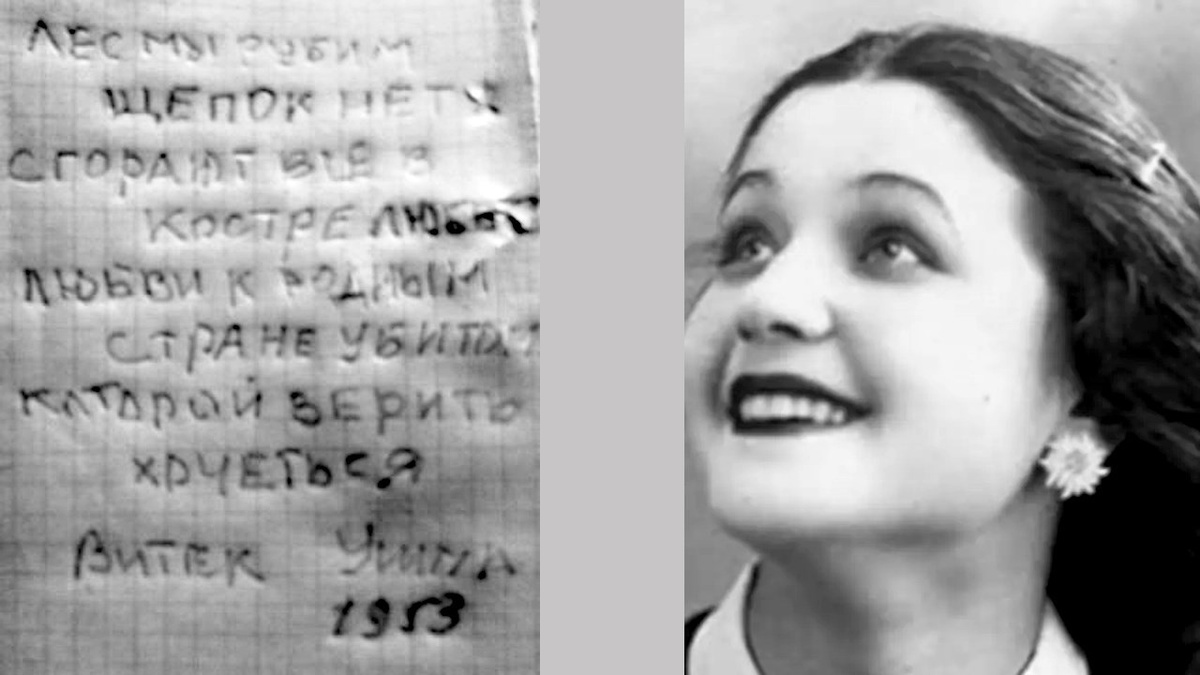 ЛЕС МЫ РУБИМ
ЩЕПОК НЕТУ
СГОРАЮТ ВСЕ В
КОСТРЕ
ЛЮБВИ К РОДНЫМ
СТРАНЕ
КАТОРОЙ ВЕРИТЬ
ХОЧЕТЬСЯ
ВИТЕК
1953